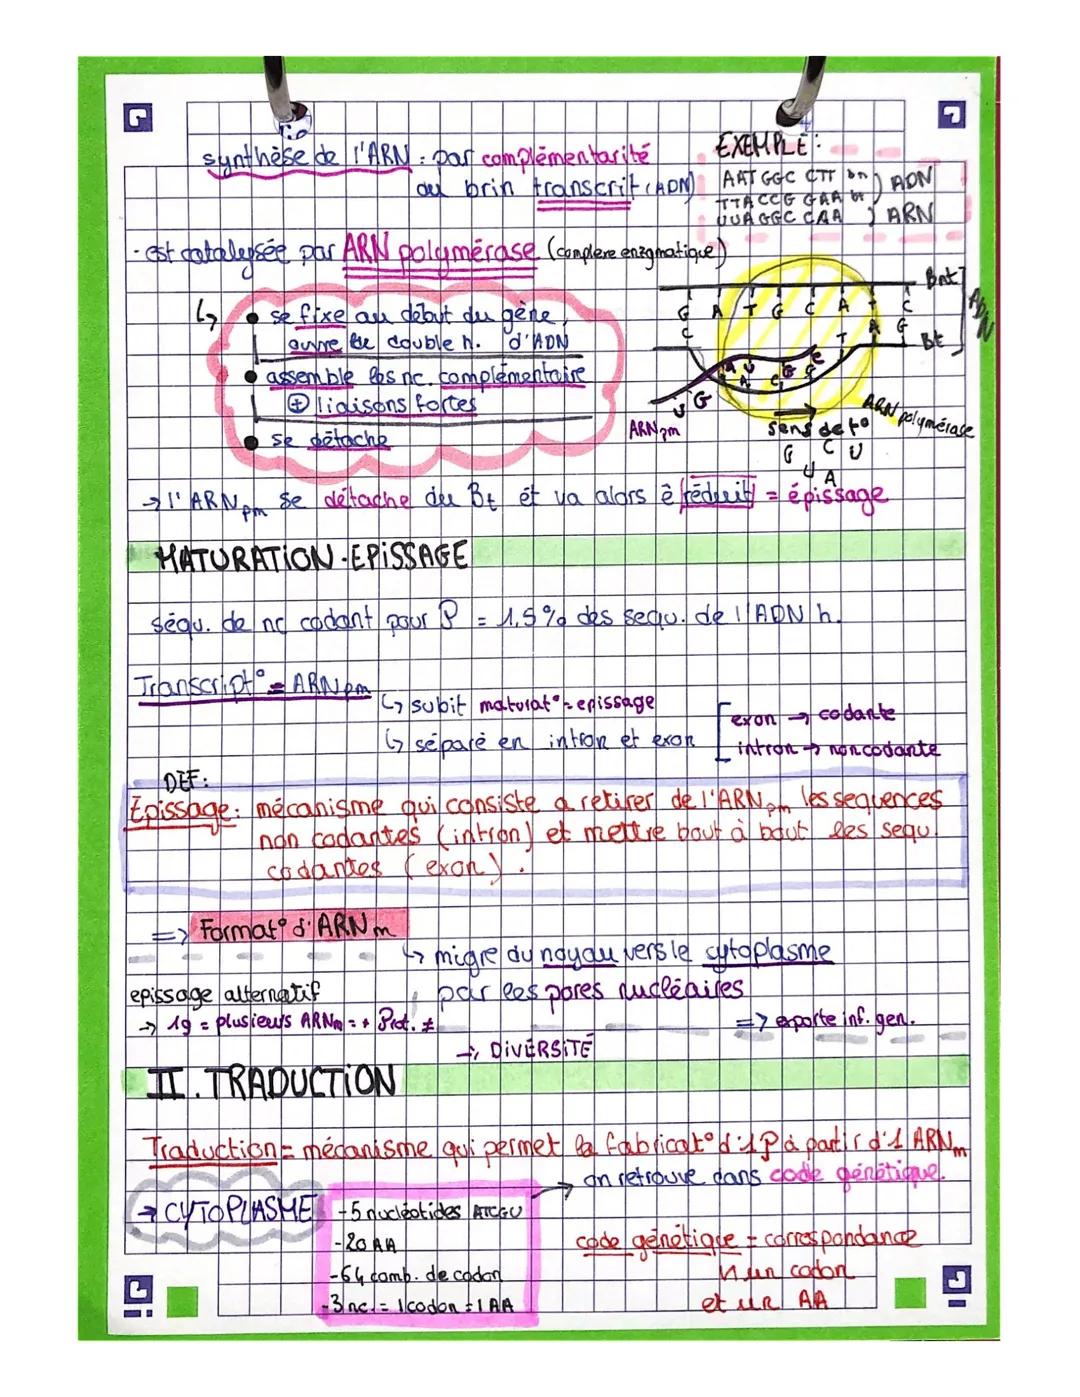 synthèse de l'ARN : par complémentarité
au brin transcrit (ADN)
EXEMPLE :
AAT GGC CTT bn
TTA CCG GAA bt
) ADN
UUAGGC CAA ) ARN
- est catalysée par ARN polymérase (complexe enzymatique)
↳ • se fixe au début du gène,
ouvre le double h. d'ADN
• assemble les nc. complémentaire
⊕ liaisons fortes
• se détache
Bnt
G A T G C C A T C
ADN
C T A G
Bt
A U G G C
A C G
U G
ARNpm
ARN polymérase
sens de t°
G C U
U A
→ l'ARNpm se détache du Bt et va alors ê réduit = épissage
MATURATION - EPISSAGE
séqu. de nc codant pour P = 1,5% des sequ. de l'ADN h.
Transcript° = ARNpm
↳ subit maturat° = epissage
↳ séparé en intron et exon
exon → codante
intron → noncodante
DEF :
Epissage : mécanisme qui consiste a retirer de l'ARNpm les sequences
non codantes (intron) et mettre bout à bout les sequ.
codantes (exon).
=> Format° d'ARNm
↳ migre du noyau vers le cytoplasme
par les pores nucléaires
=> exporte inf. gen.
epissage alternatif
→ 1g = plusieurs ARNm = + Prot. ≠
→ DIVERSITÉ
II. TRADUCTION
Traduction = mécanisme qui permet la fabricat° d'1P à partir d'1 ARNm
→ CYTOPLASME
- 5 nucléotides ATCGU
- 20 AA
- 64 comb. de codon
- 3 nc. = 1 codon = 1 AA
→ on retrouve dans code génétique.
code génétique = correspondance
un codon
et un AA